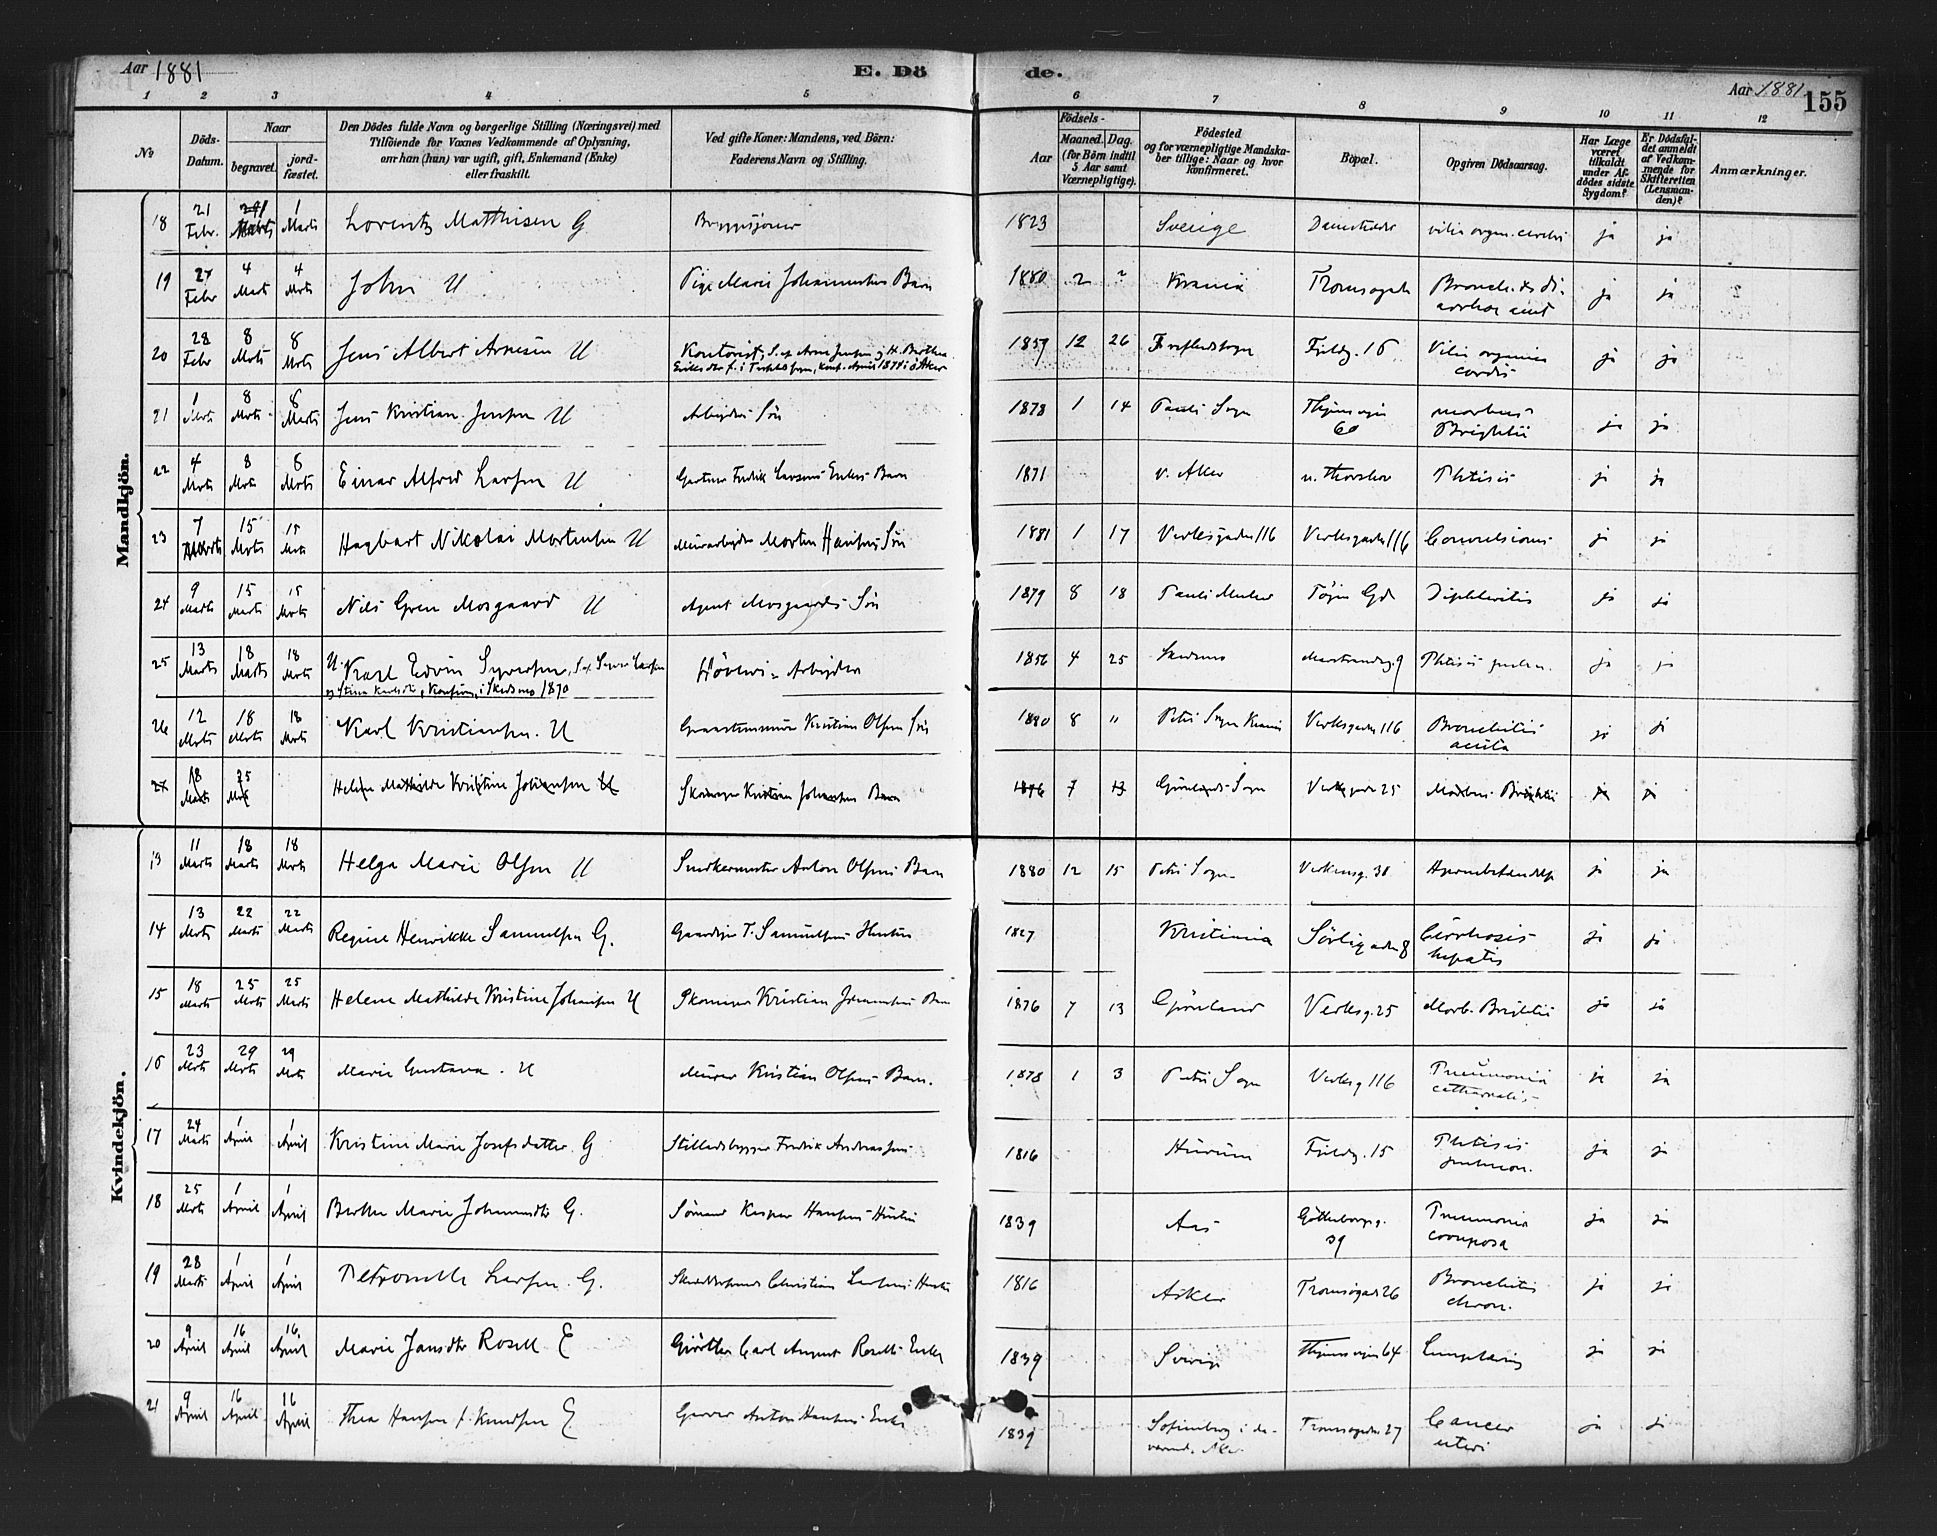 Aar 1881
E. Dö
de.
Aar 1881.
155
1 2 3 4 5 6 7 8 9 10 11 12
No
Döds-
Datum.
Naar
begravet.
jord-
fæstet.
Den Dödes fulde Navn og borgerlige Stilling (Næringsvei) med
Tilföiende for Voxnes Vedkommende af Oplysning,
om han (hun) var ugift, gift, Enkemand (Enke)
eller fraskilt.
Ved gifte Koner: Mandens, ved Börn:
Faderens Navn og Stilling.
Födsels-
Aar
Maaned. Dag.
(for Börn indtil
5 Aar samt
Værnepligtige).
Födested
og for værnepligtige Mandska-
ber tillige: Naar og hvor
konfirmeret.
Bopæl.
Opgiven Dödsaarsag.
Har Læge
været
tilkaldt
under Af-
dödes sidste
Sygdom?
Er Dödsfal-
det anmeldt
af Vedkom-
mende for
Skifteretten
(Lensman-
den)?
Anmærkninger.
Mandkjön.
18 21 Febr. 1 Marts Lorentz Matthisen G 1823 Sverige ja ja
19 27 Febr 4 Marts 4 Mrts John U Pige Marie Barn 1880 2 ? Krania Tromsøgade ja ja
20 28 Febr 8 Mrts 8 Mrts Jens Albert Arnesen U Kontorist, S. af Arne Jensen og H. Berthea
1859 12 26 Fjeldg. 15 Vitium organicum
cordis ja ja
21 1 Mrts 8 Mrts 8 Marts Jens Kristian Jensen U Arbeiders Søn 1878 1 14 Pauls Sogn
60 morbus
Brightii ja ja
22 4 Mrts 8 Mrts 8 Mrts Einar Alfred Larsen U Gartner Fredrik Larsens Enkes Barn 1871 v. Aker n. Thorshov Phtisis ja ja
23 7 Marts 15 Mrts 15 Mrts Hagbart Nikolai Mortensen U Murarbeider Morten Hansens Søn 1881 1 17 Verksgaden 116 Verksgaden 116 Convulsions ja ja
24 9 Marts 15 Marts 15 Mrts Nils Gren Mosgaard U Agent Mosgaards Søn 1879 8 18 Tøien Gd Diphteritis ja ja
25 13 Marts 18 Marts 18 Mrts U. Karl Edvin Syversen, S. af Syver Larsen
Konfirm. i Skedsmo 1870 Høvleri-Arbeider 1856 4 25 Skedsmo Markveien 9 Phtisis pulm. ja ja
26 12 Mrts 18 Mrts 18 Mrts Karl Kristiansen. U Kristian Olsens Søn 1880 8 " Petri Sogn Krania Verksgaden 116 Bronchitis
acuta ja ja
27 18 Marts 25 Mrts Helene Mathilde Kristine Johansen U Skomager Kristian Johansens Barn 1876 7 13 Grønlands Sogn Verksgade 25 Morbus Brightii ja ja
Kvindekjön.
13 11 Marts 18 Marts 18 Mrts Helga Marie Olsen U Snedkermester Anton Olsens Barn 1880 12 15 Petri Sogn Verksg. 38 ja ja
14 13 Mrts 22 Marts 22 Marts Regine Henrikke Samuelsen G. Gaardeier T. Samuelsens Hustru 1827 Kristiania Sørligaden 8 Cirrhosis
hepatis ja ja
15 18 Marts 25 Mrts 25 Marts Helene Mathilde Kristine Johansen U Skomager Kristian Johansens Barn 1876 7 13 Grønland Verksg. 25 Morb. Brightii ja ja
16 23 Mrts 29 Mrts 29 Mrts Marie Gustava. U Murer Kristian Olsens Barn. 1878 1 3 Petri Sogn Verksg 116 Pneumonia
catharralis ja ja
17 24 Marts 1 April 1 April Kristine Marie Josefsdatter G Stilladsbygger Fredrik Andreassens 1816 Hurum Fjeldg. 15 Phtisis
pulmon. ja ja
18 25 Mrts 1 April 1 April Berthe Marie G. Sømand Kasper Hansens Hustru 1839 Aas Gøtheborgs g.
39 Pneumonia
crouposa ja ja
19 28 Marts 1 April 1 April Petronelle Larsen. G. Christian Larsens Hustru 1816 Asker Tromsøgade 26 Bronchitis
chron. ja ja
20 9 April 16 April 16 April Marie Jansdtr Rosell E Gjørtler Carl August Rosells Enke 1839 Sverige 64 ja ja
21 9 April 16 April 16 April Thea Hansen f. Knudsen E Garver Anton Hansens Enke 1839 Sofienberg i da-
værende Aker Tromsøgaden 27 Cancer
uteri ja ja